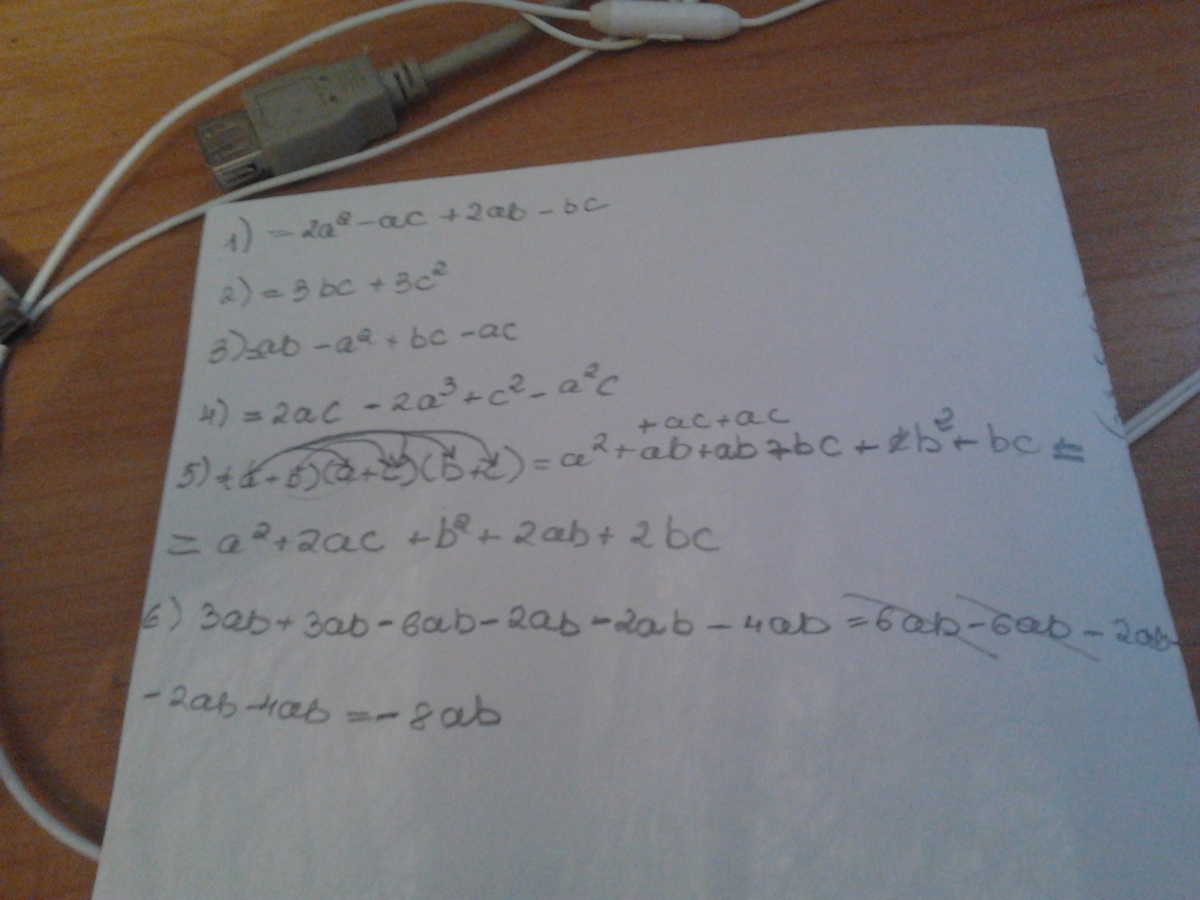 1) = 2a² - ac + 2ab - bc
2) = 3bc + 3c²
3) = ab - a² + bc - ac
4) = 2ac - 2a³ + c² - a²c
+ ac + ac
5) (a + b)(a + c)(b + c) = a² + ab + ab + bc + b² + bc =
= a² + 2ac + b² + 2ab + 2bc
6) 3ab + 3ab - 6ab - 2ab - 2ab - 4ab = 6ab - 6ab - 2ab -
- 2ab - 4ab = - 8ab